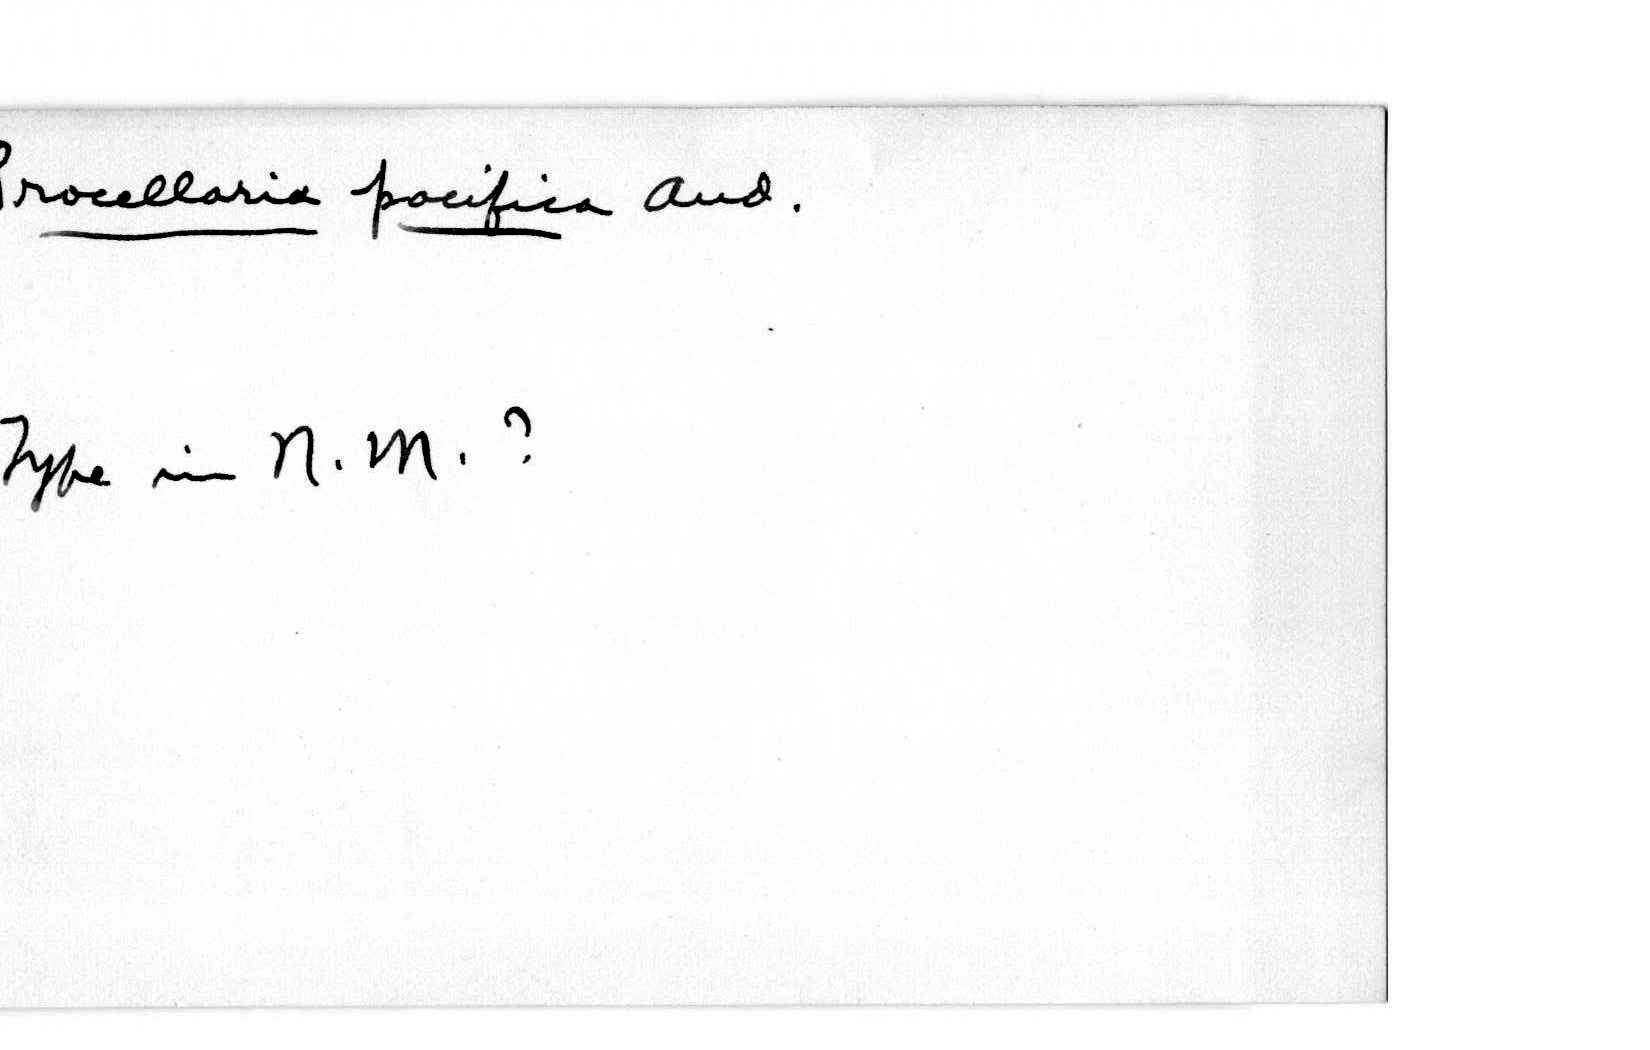 Procellaria pacifica Aud.
Type in N.M.?